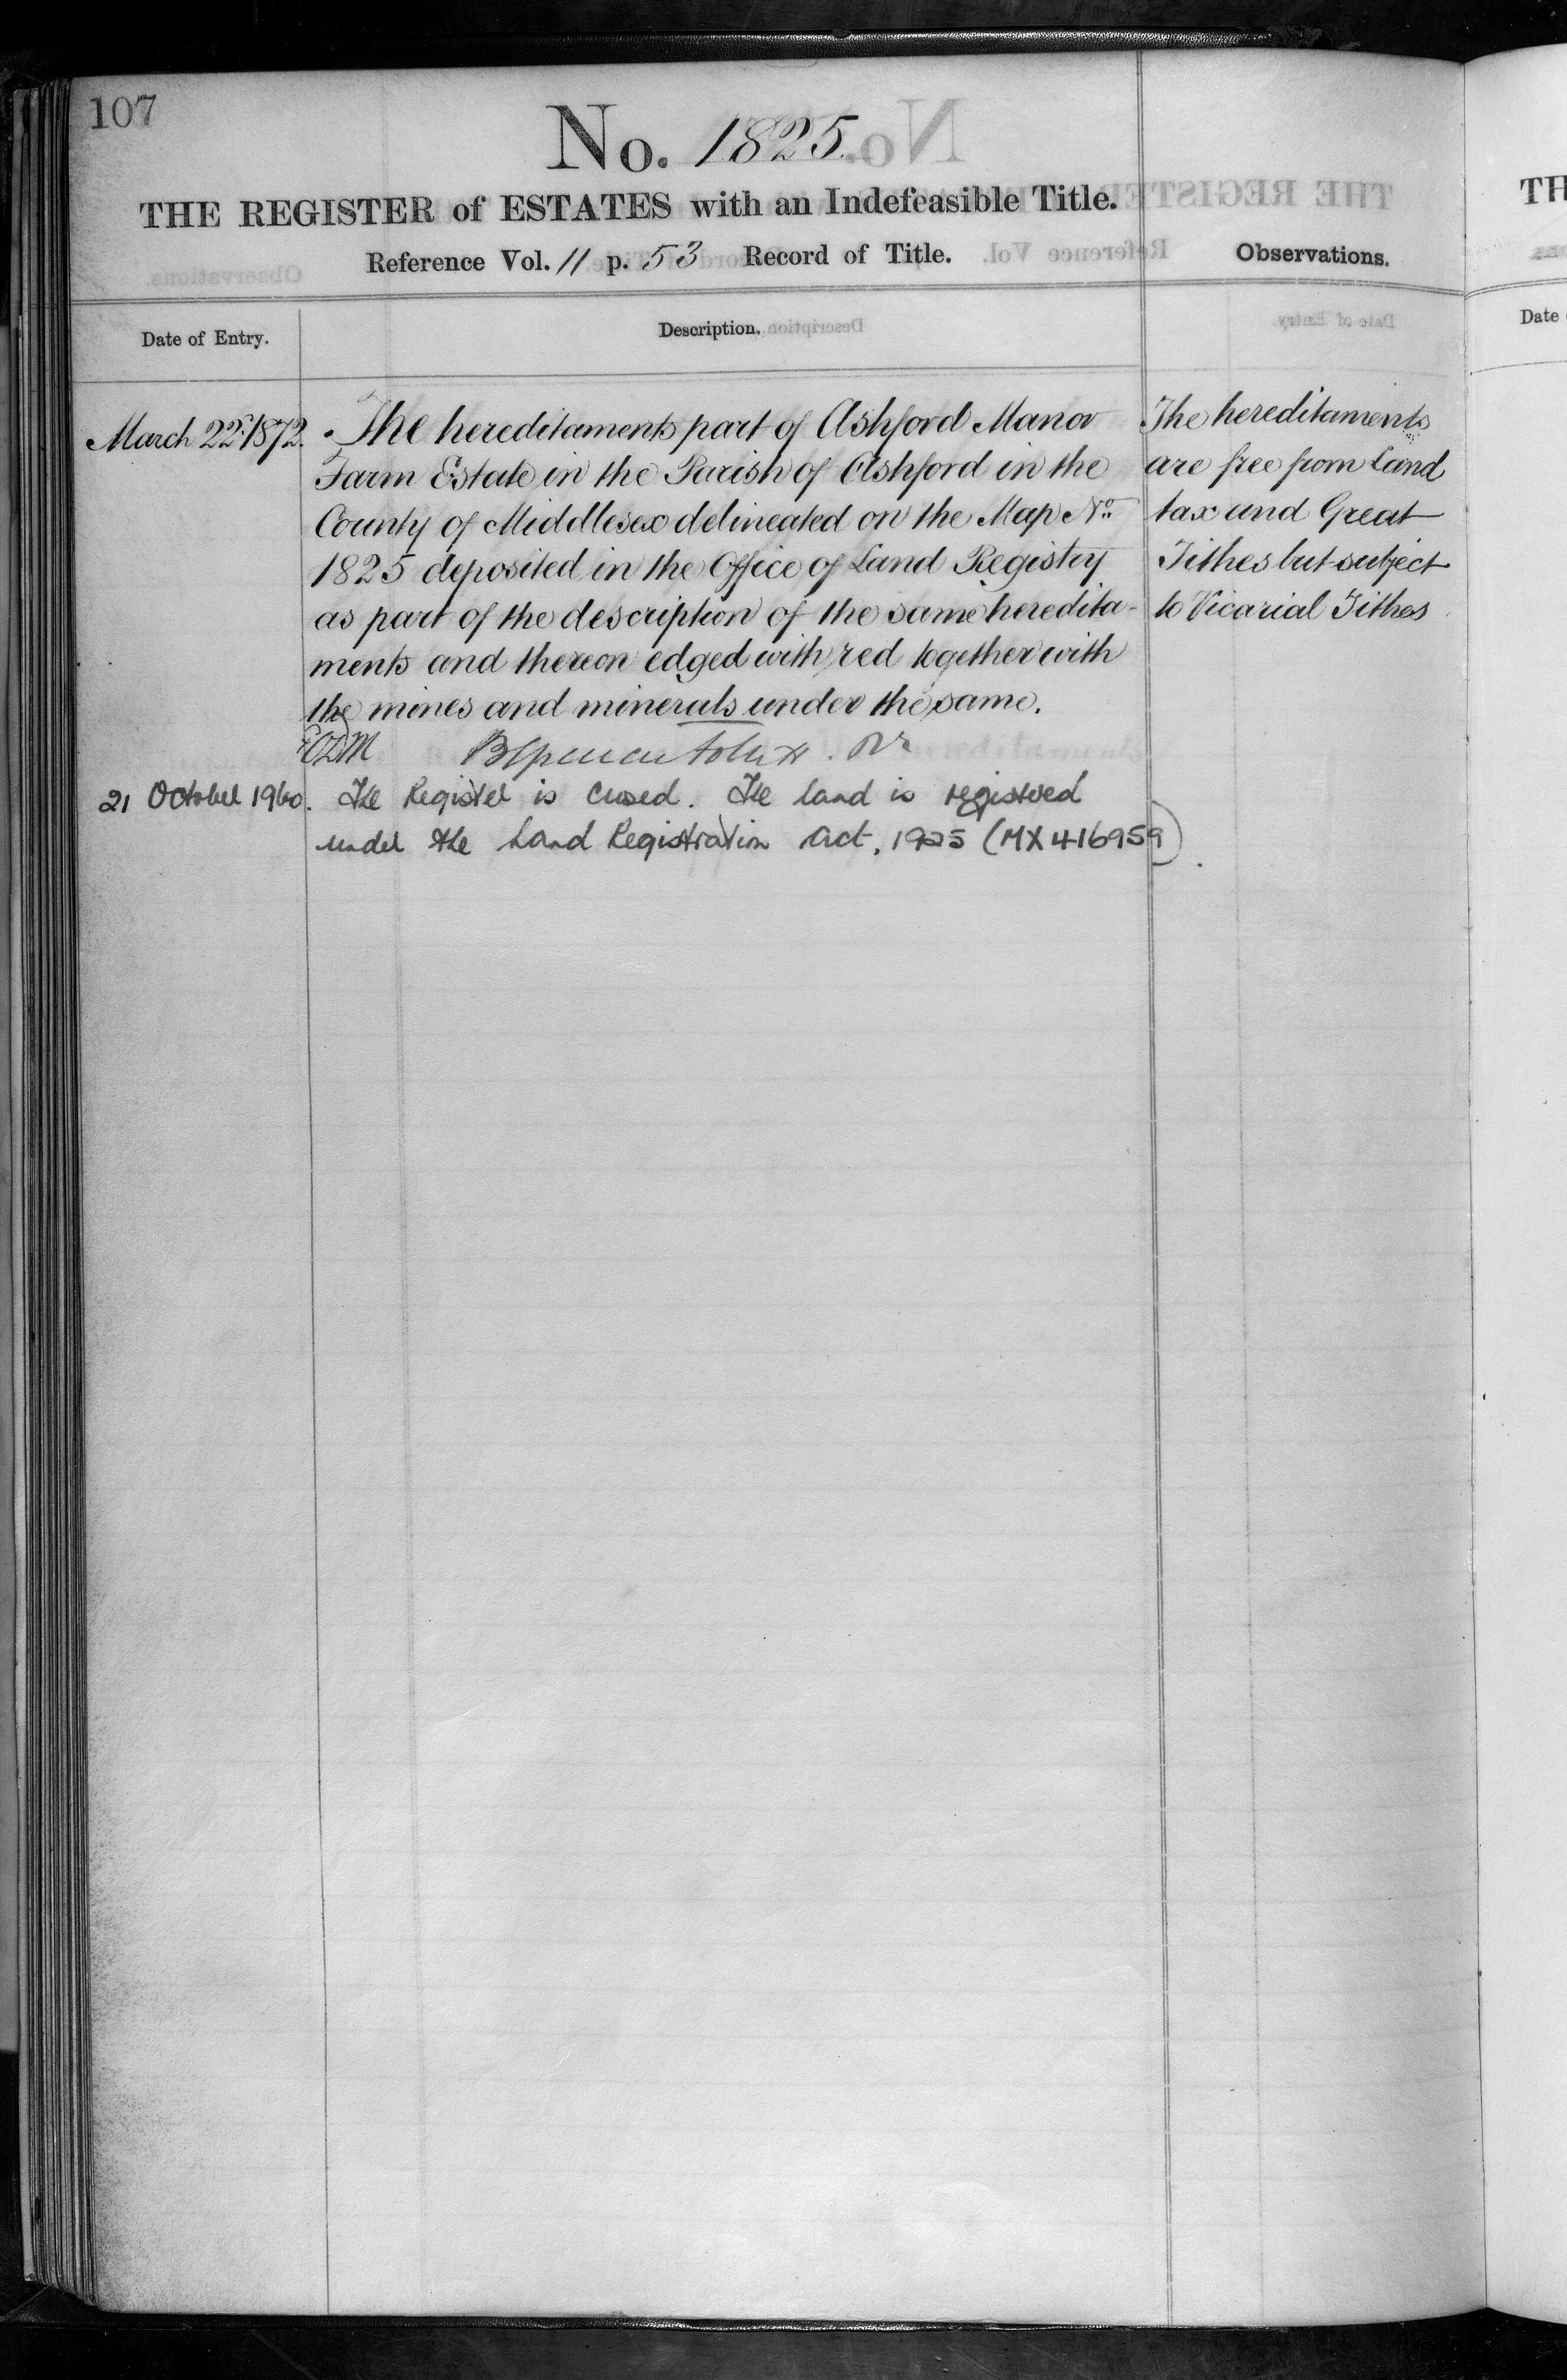 107
No. 1825.
THE REGISTER of ESTATES with an Indefeasible Title.
Reference Vol. 11 p. 53 Record of Title.
Observations.
Date of Entry.
Description.
March 22d. 1872.
The hereditaments part of Ashford Manor
Farm Estate in the Parish of Ashford in the
County of Middlesex delineated on the Map No.
1825 deposited in the Office of Land Registry
as part of the description of the same heredita-
ments and thereon edged with red together with
the mines and minerals under the same.
The hereditaments
are free from Land
tax and Great
Tithes but subject
to Vicarial Tithes
21 October 1960.
The Register is closed. The land is registered
under the Land Registration Act, 1925 (MX416959).
TH
Date